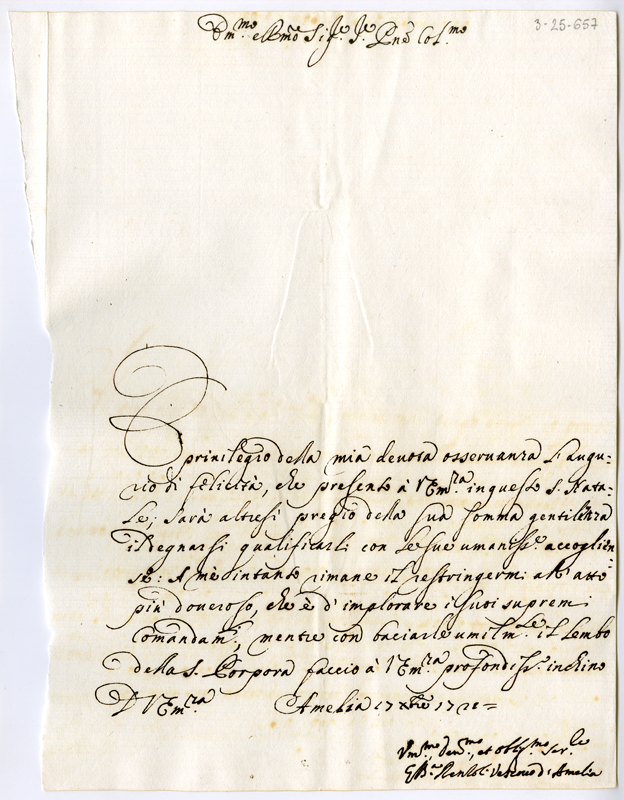 Em.mo e Rmo Sig.re Sre Pne Col.mo
3-25-657
È privilegio della mia devota osservanza l'augu-
rio di felicità, che presento à V Em.za in questo S. Nata-
le; sarà altresì pregio della sua somma gentilezza
il degnarsi qualificarli con le sue umaniss.e accoglien-
se: A mè intanto rimane il restringermi all'atto
più doveroso, che è d'implorare i suoi supremi
Comandam.i, mentre con baciarle umilm.te il lembo
della S. Porpora faccio à V Em.za profondiss.o inchino
D V Em.za Amelia 17 Xbre
Um.mo Dev.mo, et obbl.mo Ser.re
Vescovo di Amelia